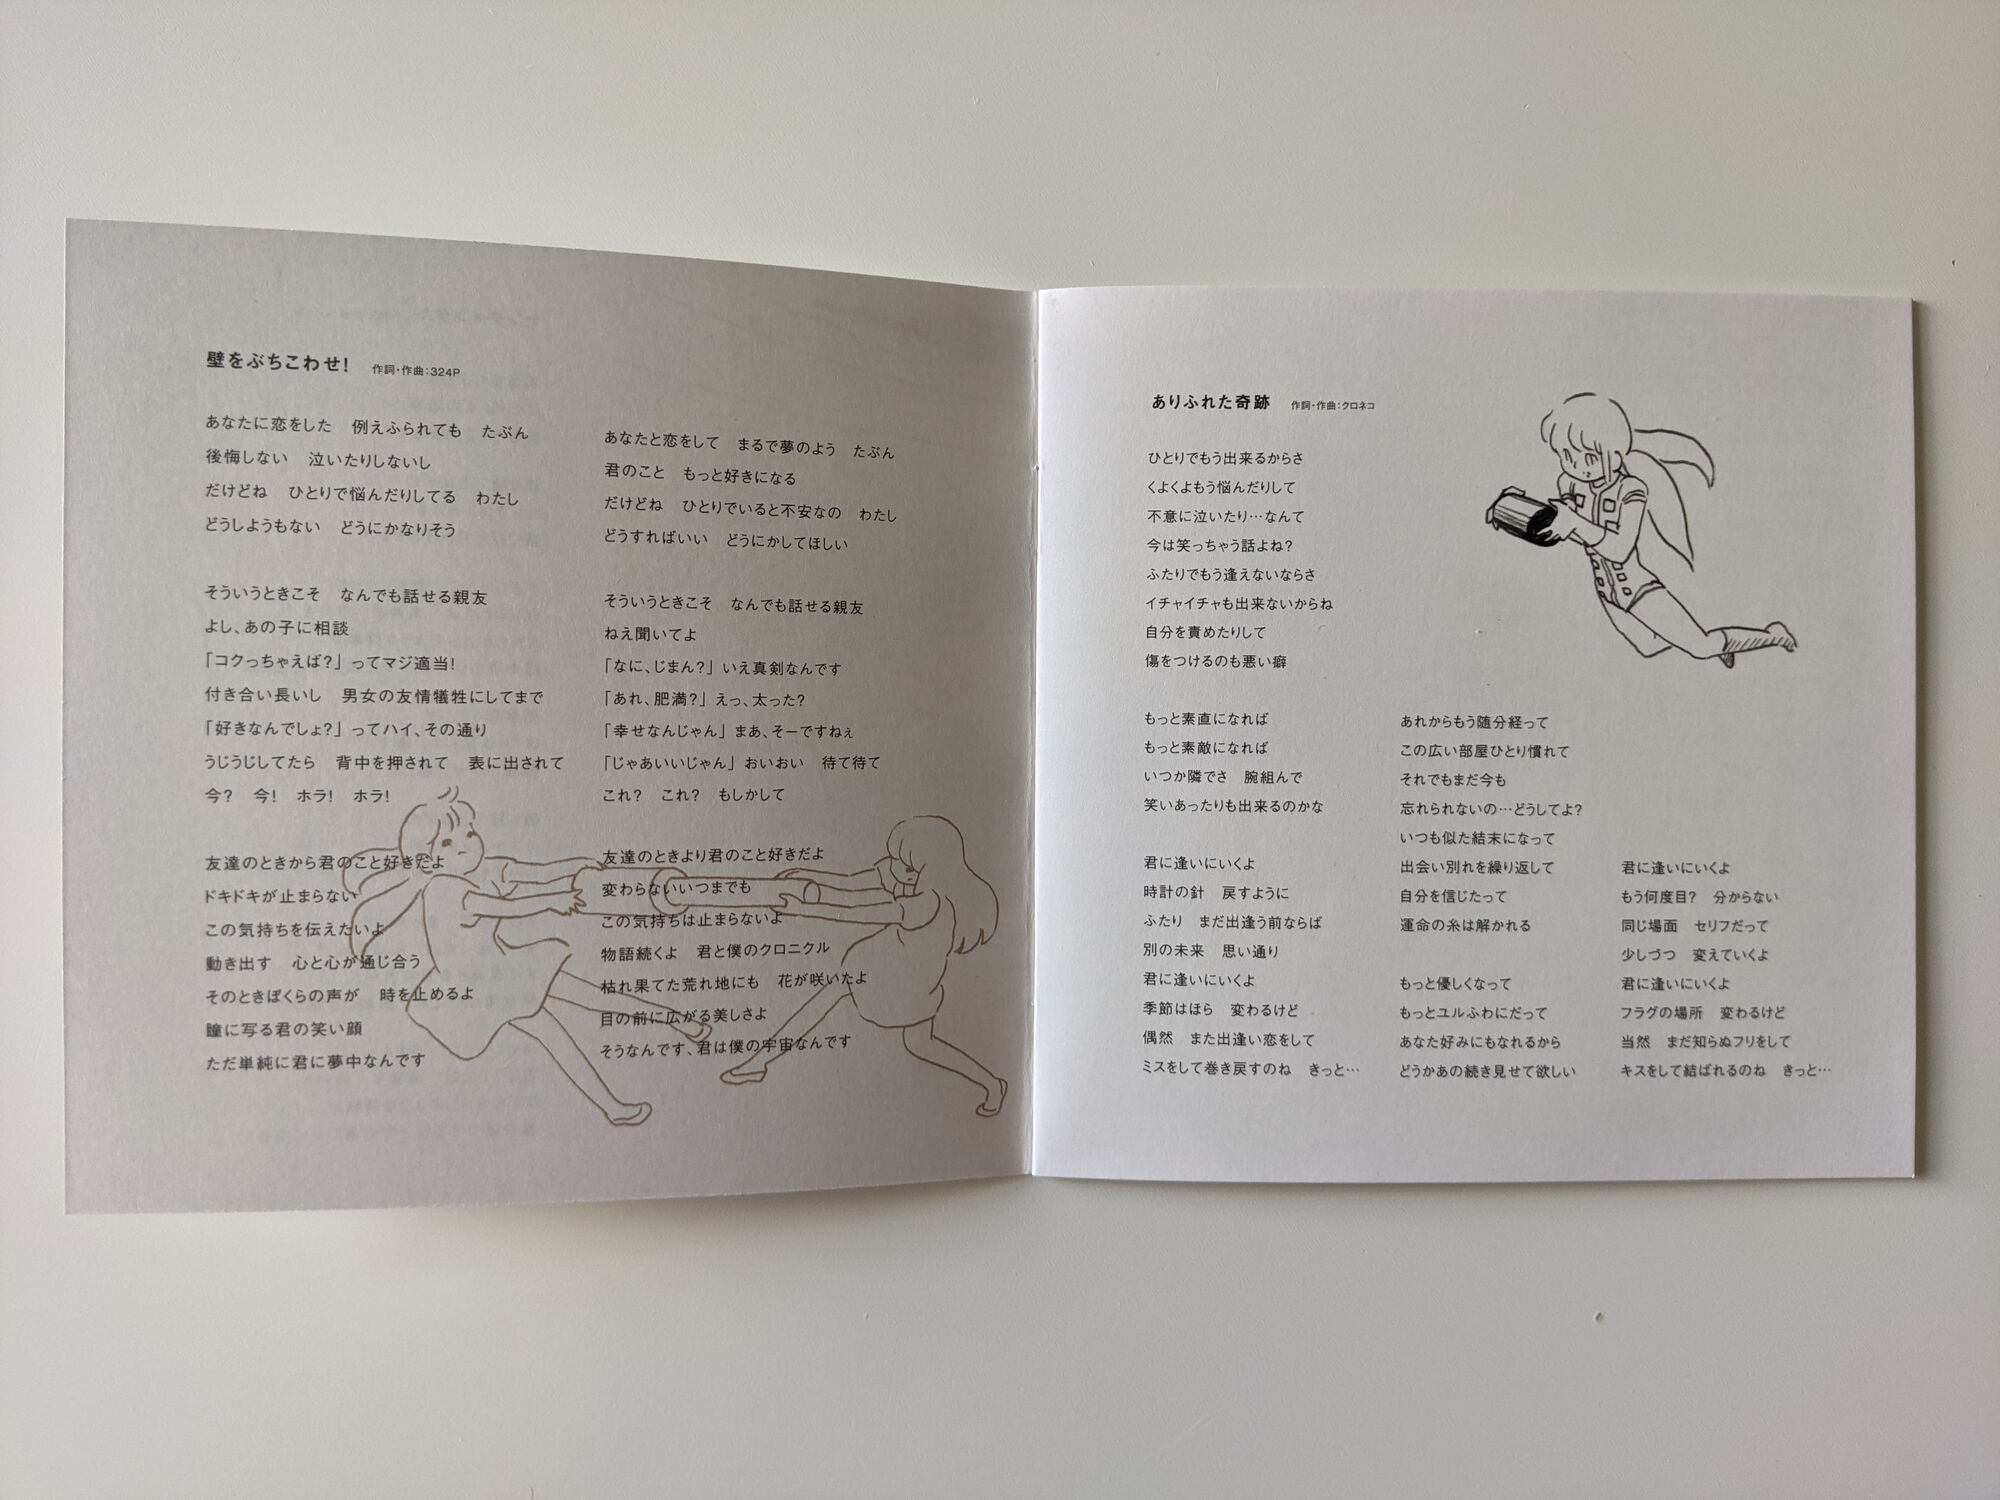 壁をぶちこわせ!　作詞・作曲：324P
あなたに恋をした　例えふられても　たぶん
後悔しない　泣いたりしないし
だけどね　ひとりで悩んだりしてる　わたし
どうしようもない　どうにかなりそう
そういうときこそ　なんでも話せる親友
よし、あの子に相談
「コクっちゃえば?」ってマジ適当!
付き合い長いし　男女の友情犠牲にしてまで
「好きなんでしょ?」ってハイ、その通り
うじうじしてたら　背中を押されて　表に出されて
今?　今!　ホラ!　ホラ!
友達のときから君のこと好きだよ
ドキドキが止まらない
この気持ちを伝えたいよ
動き出す　心と心が通じ合う
そのときぼくらの声が　時を止めるよ
瞳に写る君の笑い顔
ただ単純に君に夢中なんです
あなたと恋をして　まるで夢のよう　たぶん
君のこと　もっと好きになる
だけどね　ひとりでいると不安なの　わたし
どうすればいい　どうにかしてほしい
そういうときこそ　なんでも話せる親友
ねえ聞いてよ
「なに、じまん?」いえ真剣なんです
「あれ、肥満?」えっ、太った?
「幸せなんじゃん」まあ、そーですねぇ
「じゃあいいじゃん」おいおい　待て待て
これ?　これ?　もしかして
友達のときより君のこと好きだよ
変わらないいつまでも
この気持ちは止まらないよ
物語続くよ　君と僕のクロニクル
枯れ果てた荒れ地にも　花が咲いたよ
目の前に広がる美しさよ
そうなんです、君は僕の宇宙なんです
ありふれた奇跡　作詞・作曲：クロネコ
ひとりでもう出来るからさ
くよくよもう悩んだりして
不意に泣いたり…なんて
今は笑っちゃう話よね?
ふたりでもう逢えないならさ
イチャイチャも出来ないからね
自分を責めたりして
傷をつけるのも悪い癖
もっと素直になれば
もっと素敵になれば
いつか隣でさ　腕組んで
笑いあったりも出来るのかな
君に逢いにいくよ
時計の針　戻すように
ふたり　まだ出逢う前ならば
別の未来　思い通り
君に逢いにいくよ
季節はほら　変わるけど
偶然　また出逢い恋をして
ミスをして巻き戻すのね　きっと…
あれからもう随分経って
この広い部屋ひとり慣れて
それでもまだ今も
忘れられないの…どうしてよ?
いつも似た結末になって
出会い別れを繰り返して
自分を信じたって
運命の糸は解かれる
もっと優しくなって
もっとユルふわにだって
あなた好みにもなれるから
どうかあの続き見せて欲しい
君に逢いにいくよ
もう何度目?　分からない
同じ場面　セリフだって
少しづつ　変えていくよ
君に逢いにいくよ
フラグの場所　変わるけど
当然　まだ知らぬフリをして
キスをして結ばれるのね　きっと…